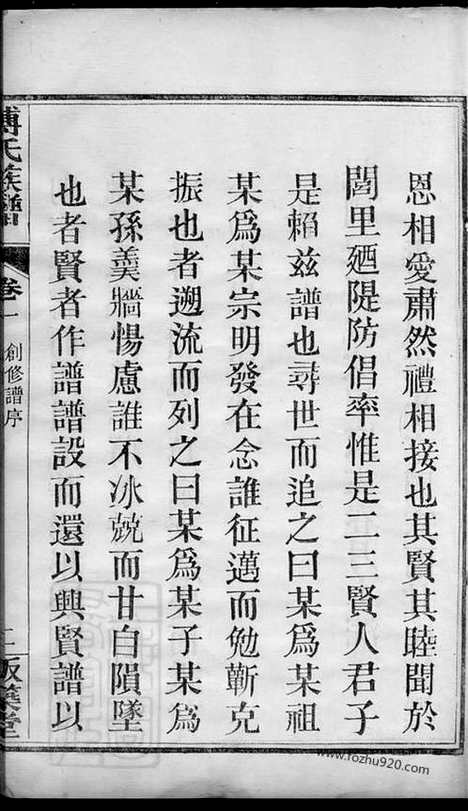 恩相愛肅然禮相接也其賢其睦聞於
閭里廼隄防倡率惟是二三賢人君子
是賴兹譜也尋世而追之曰某爲某祖
某爲某宗明發在念誰征邁而勉蘄克
振也者遡流而列之曰某爲某子某爲
某孫羹牆惕慮誰不冰兢而甘自隕墜
也者賢者作譜譜設而還以興賢譜以
氏族譜
卷一
創修譜序
www.fozhu920.com